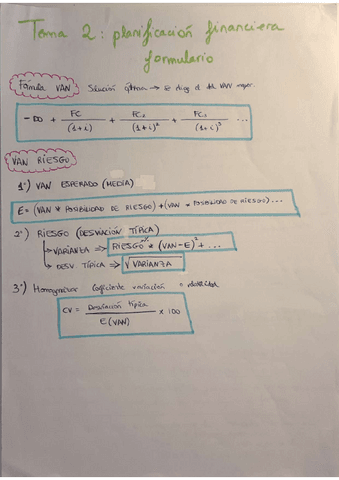 Tema 2: planificación financiera
formulario
Fórmula VAN Solución óptima → Se elige el VAN mayor.
- DO + FC / (1+i) + FC₂ / (1+i)² + FC₃ / (1+i)³ ...
VAN RIESGO
1º) VAN ESPERADO (MEDIA)
E = (VAN * POSIBILIDAD DE RIESGO) + (VAN * POSIBILIDAD DE RIESGO) ...
2º) RIESGO (DESVIACIÓN TÍPICA)
↳ VARIANZA ⇒ RIESGO * (VAN - E)² + ...
↳ DESV. TÍPICA ⇒ √VARIANZA
3º) Homogeneizar Coeficiente variación o
CV = Desviación típica / E (VAN) × 100